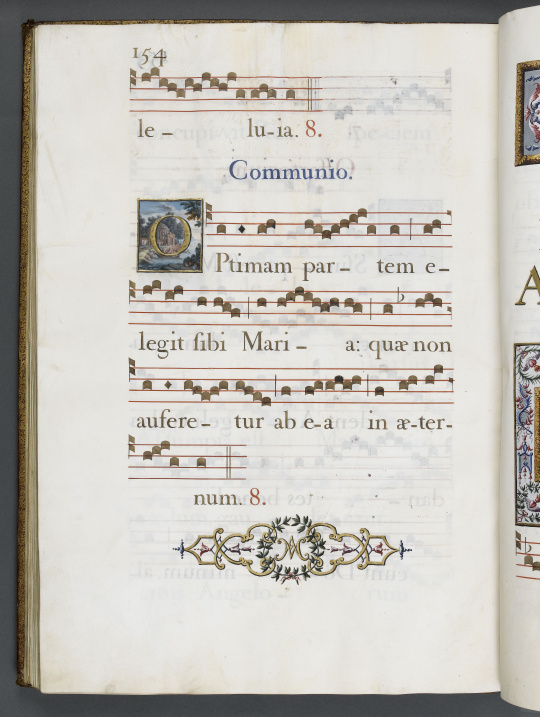 154
le – lu-ia. 8.
Communio.
OPtimam par – tem e –
legit ſibi Mari – a: quæ non
aufere – tur ab e-a in æ-ter-
num. 8.
A